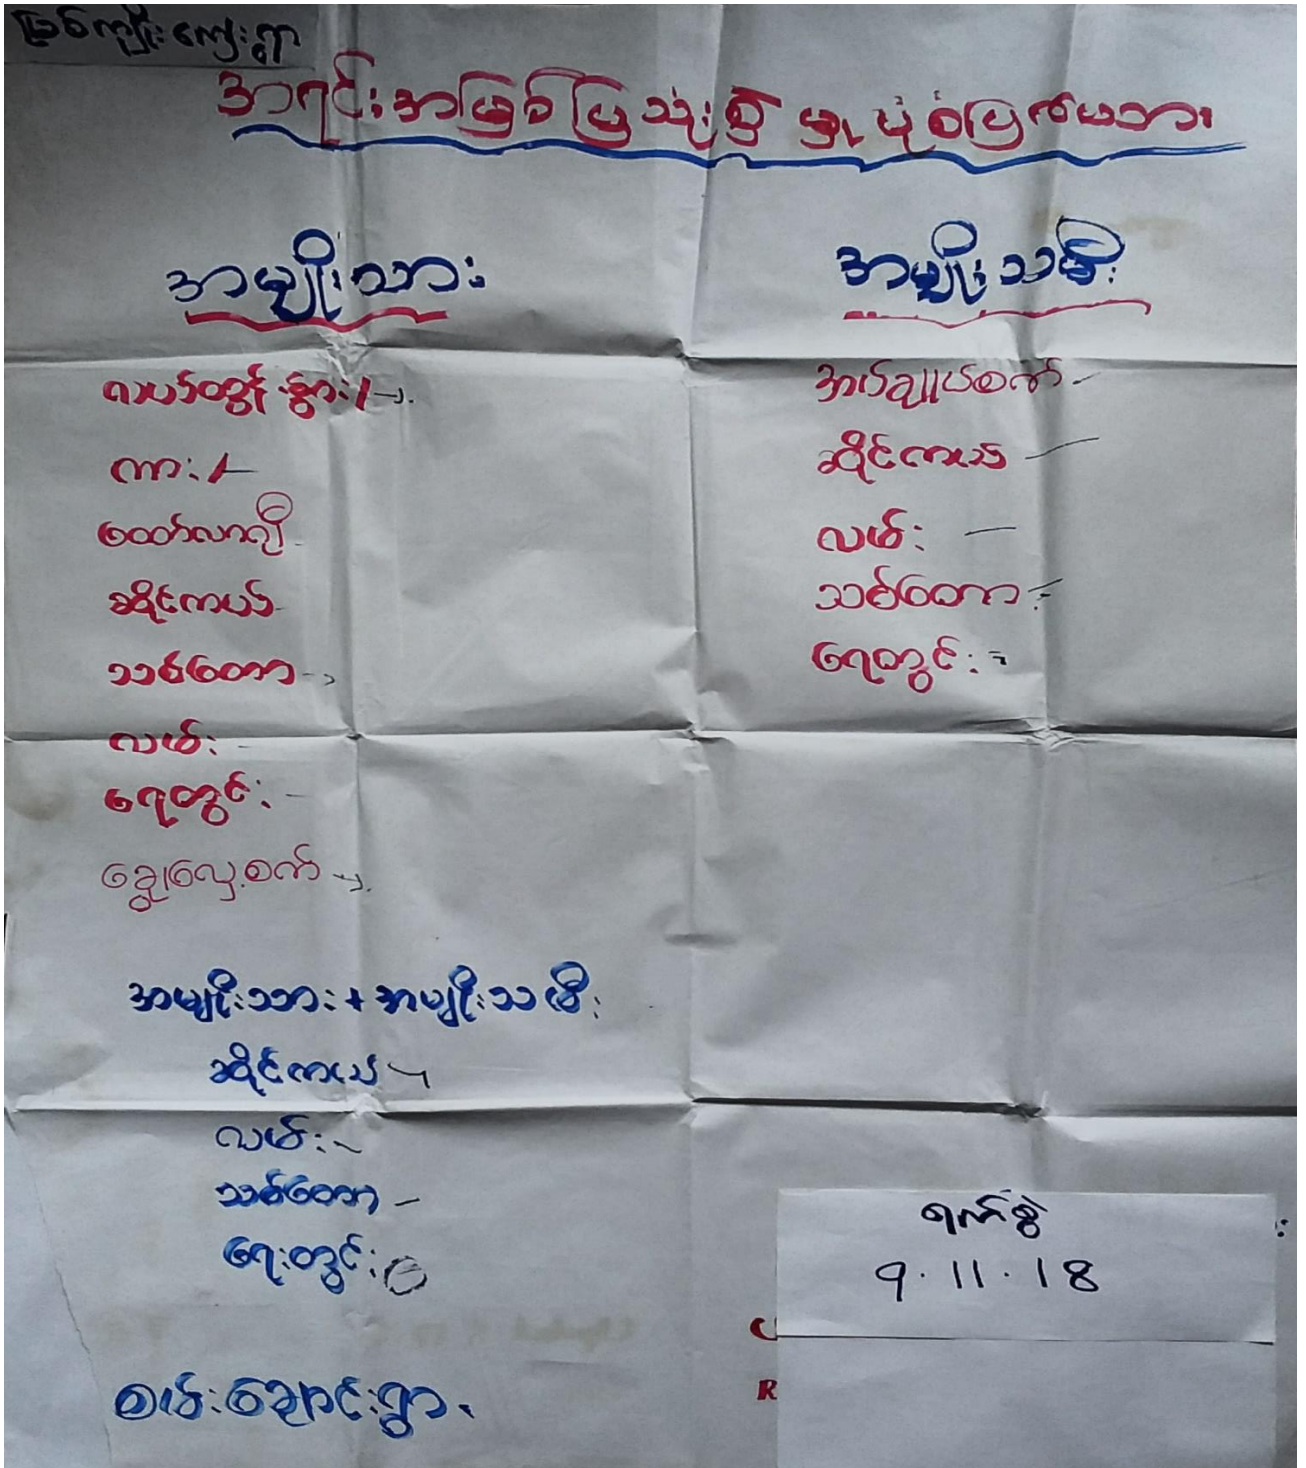 မြစ်ကျိုးကျေးရွာ
အရင်းအမြစ်ပြသုံးစွဲမှုပုံစံပြကားချပ်
အမျိုးသား
အမျိုးသမီး
လယ်ထွန် စက်
ကား
ထော်လာဂျီ
ဆိုင်ကယ်
သစ်တော
လမ်း
ရေတွင်း
ချွေလှေ့စက်
အပ်ချုပ်စက်
ဆိုင်ကယ်
လမ်း
သစ်တော
ရေတွင်း
အမျိုးသား + အမျိုးသမီး
ဆိုင်ကယ်
လမ်း
သစ်တော
ရေတွင်း
စမ်းချောင်းရွာ
ရက်စွဲ
9.11.18
R